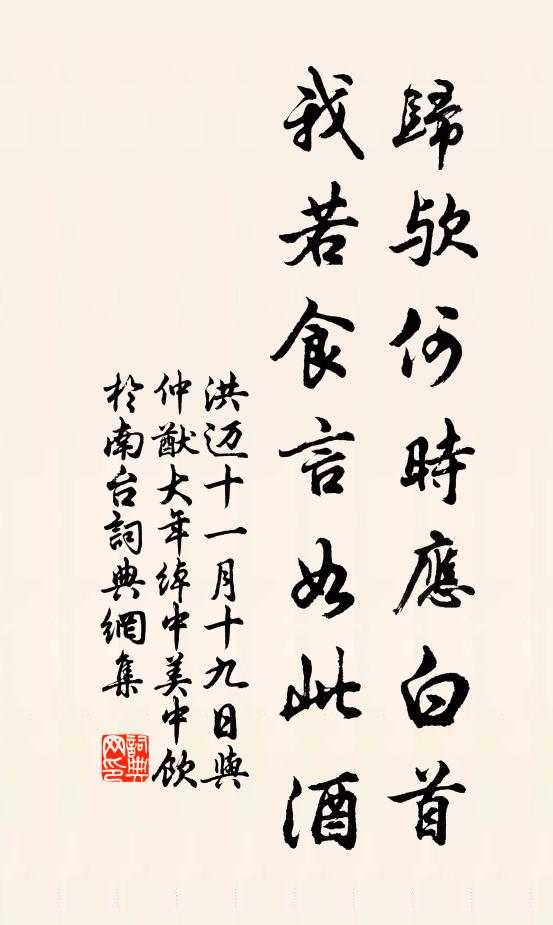 歸欤何時應白首
我若食言如此酒
洪迈十一月十九日與
仲猷大年绰中美中飲
於南台詞典網集
詞典网印